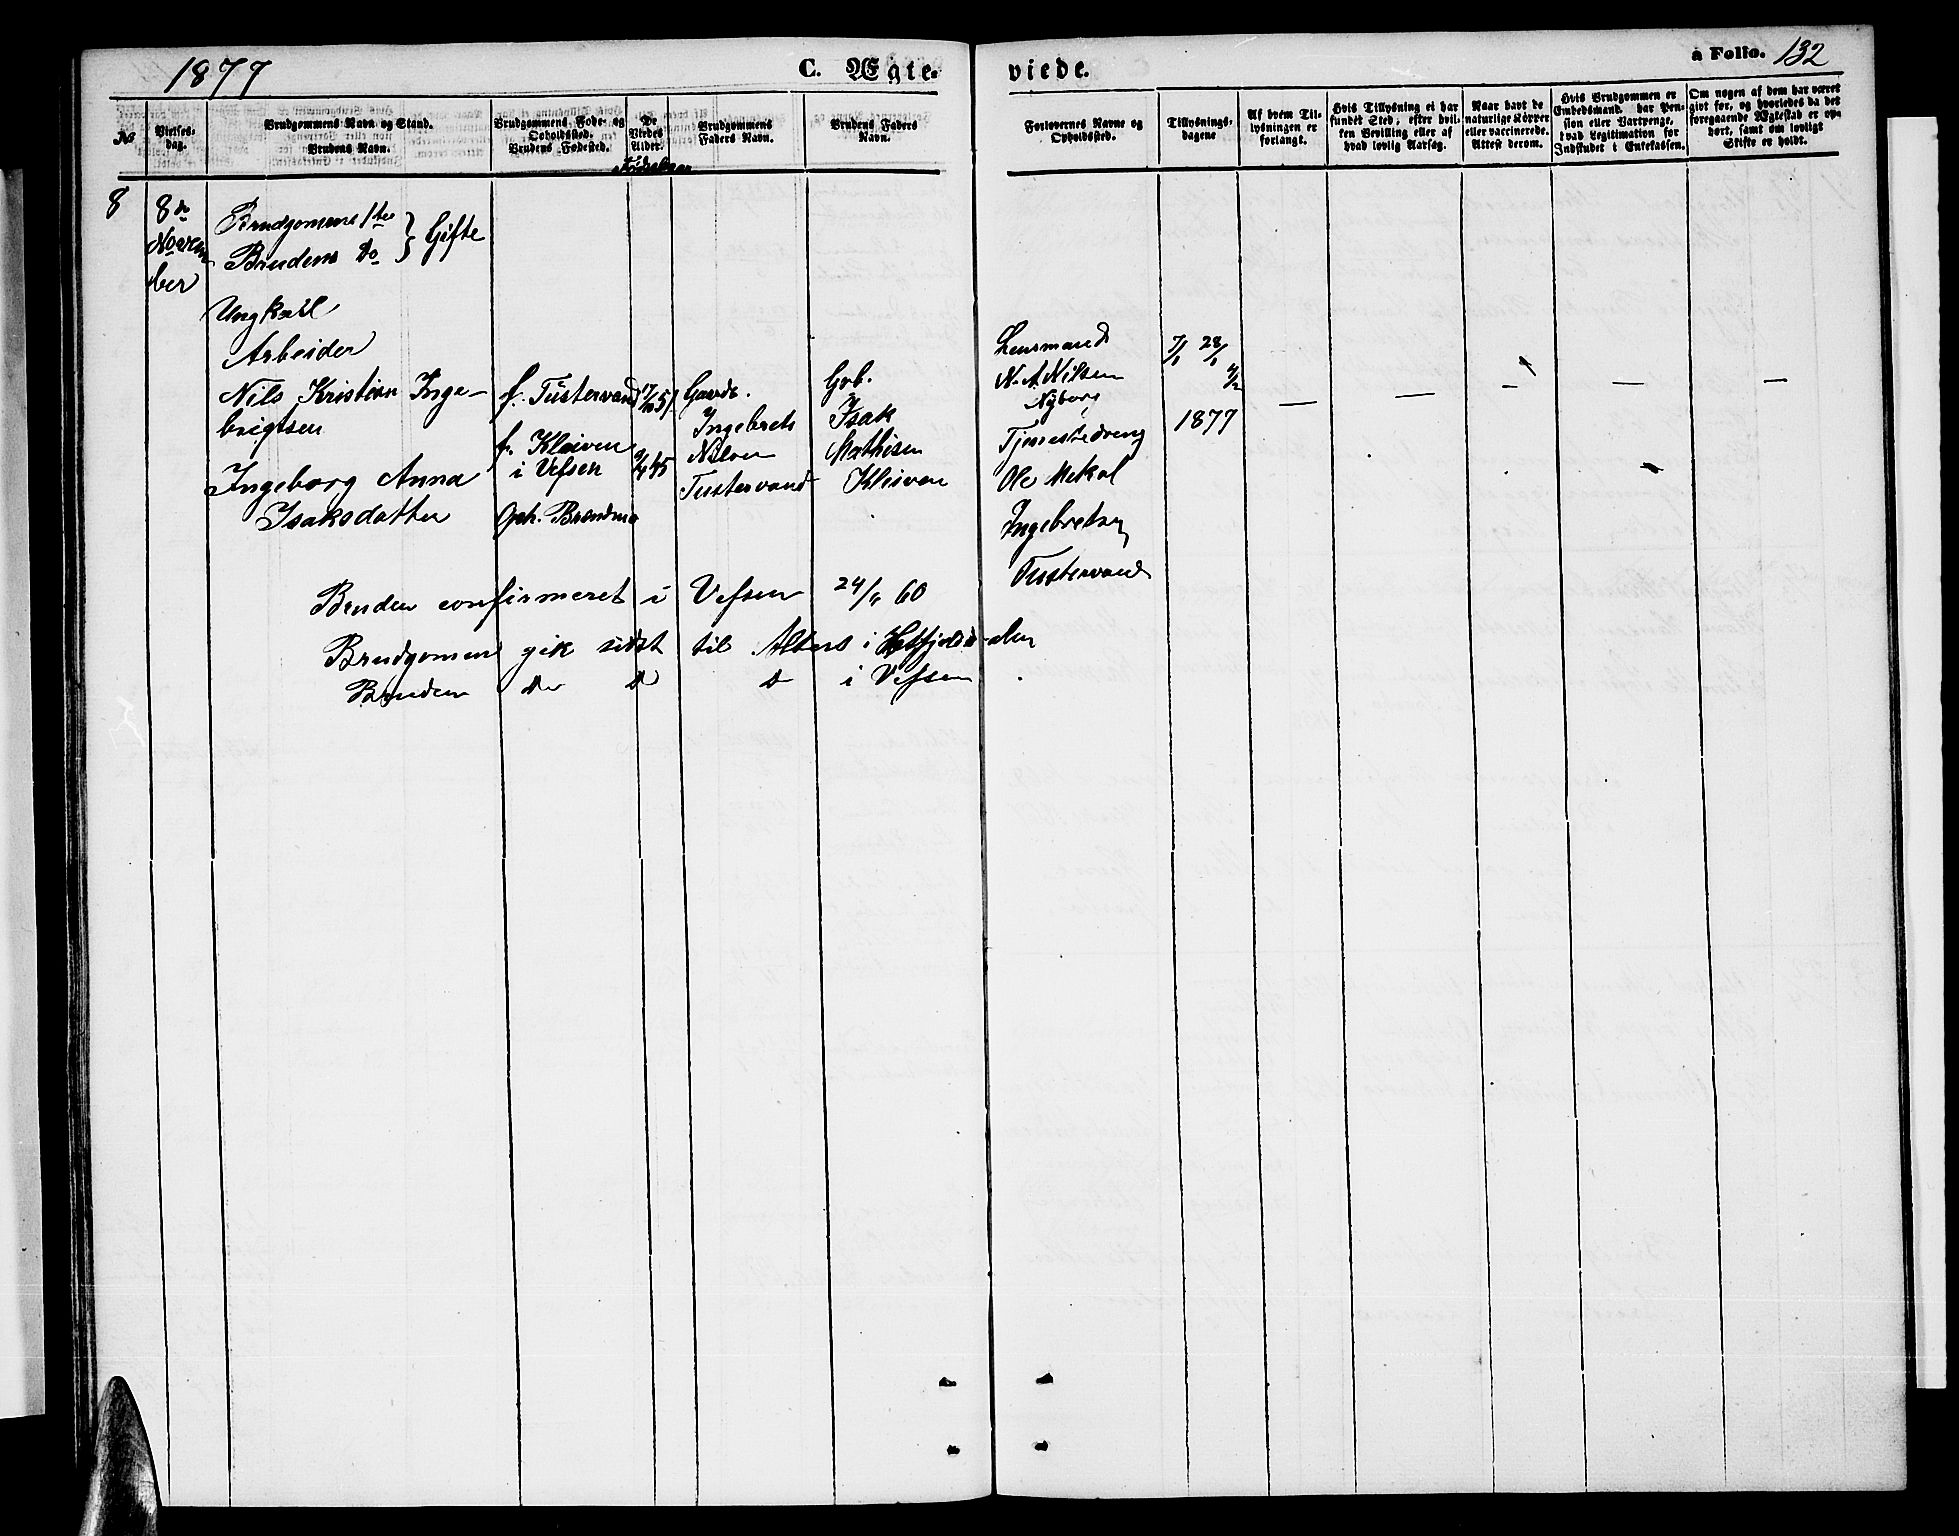 1877
C. Ægte-
viede.
a Folio. 132
No
Vielses-
dag.
Brudgommens Navn og Stand.
Brudens Navn.
Brudgommens Føde- og
Opholdssted.
Brudens Fødested.
De
Viedes
Alder.
Fødselsaar
Brudgommens
Faders Navn.
Brudens Faders
Navn.
Forlovernes Navne og
Opholdssted.
Tillysnings-
dagene
Af hvem Til-
lysningen er
forlangt.
Hvis Tillysning ei har
fundet Sted, efter hvil-
ken Bevilling eller af
hvad lovlig Aarsag.
Naar havt de
naturlige Kopper
eller vaccinerede.
Attest derom.
Hvis Brudgommen er
Embedsmand, har Pen-
sion eller Vartpenge,
hvad Legitimation for
Indskudet i Enkekassen.
Om nogen af dem har været
givt før, og hvorledes da det
foregaaende Ægteskab er op-
hørt, samt om lovligt
Skifte er holdt.
8
8de
Novem
ber
Brudgommens 1ste
Brudens Do } Gifte
Ungkarl
Arbeider
Nils Kristian Inge-
brigtsen
Ingeborg Anna
Isaksdatter
f. Tustervand
f. Kleiven
i Vefsen
Oph. Brendmo
17/10 51
9/4 45
Gaardb.
Ingebret
Nilsen
Tustervand
Grb.
Isak
Mathisen
Kleiven
Lensmand
N. A. Nilsen
Nyborg
Tjenestedreng
Ole Mekal
Ingebretsen
Tustervand
7/1 28/1
4/2
1877
— — — — —
Bruden confirmeret i Vefsen 24/6 60
Brudgommen gik sidst til Alters i Hatfjelddalen
Bruden do do do i Vefsen